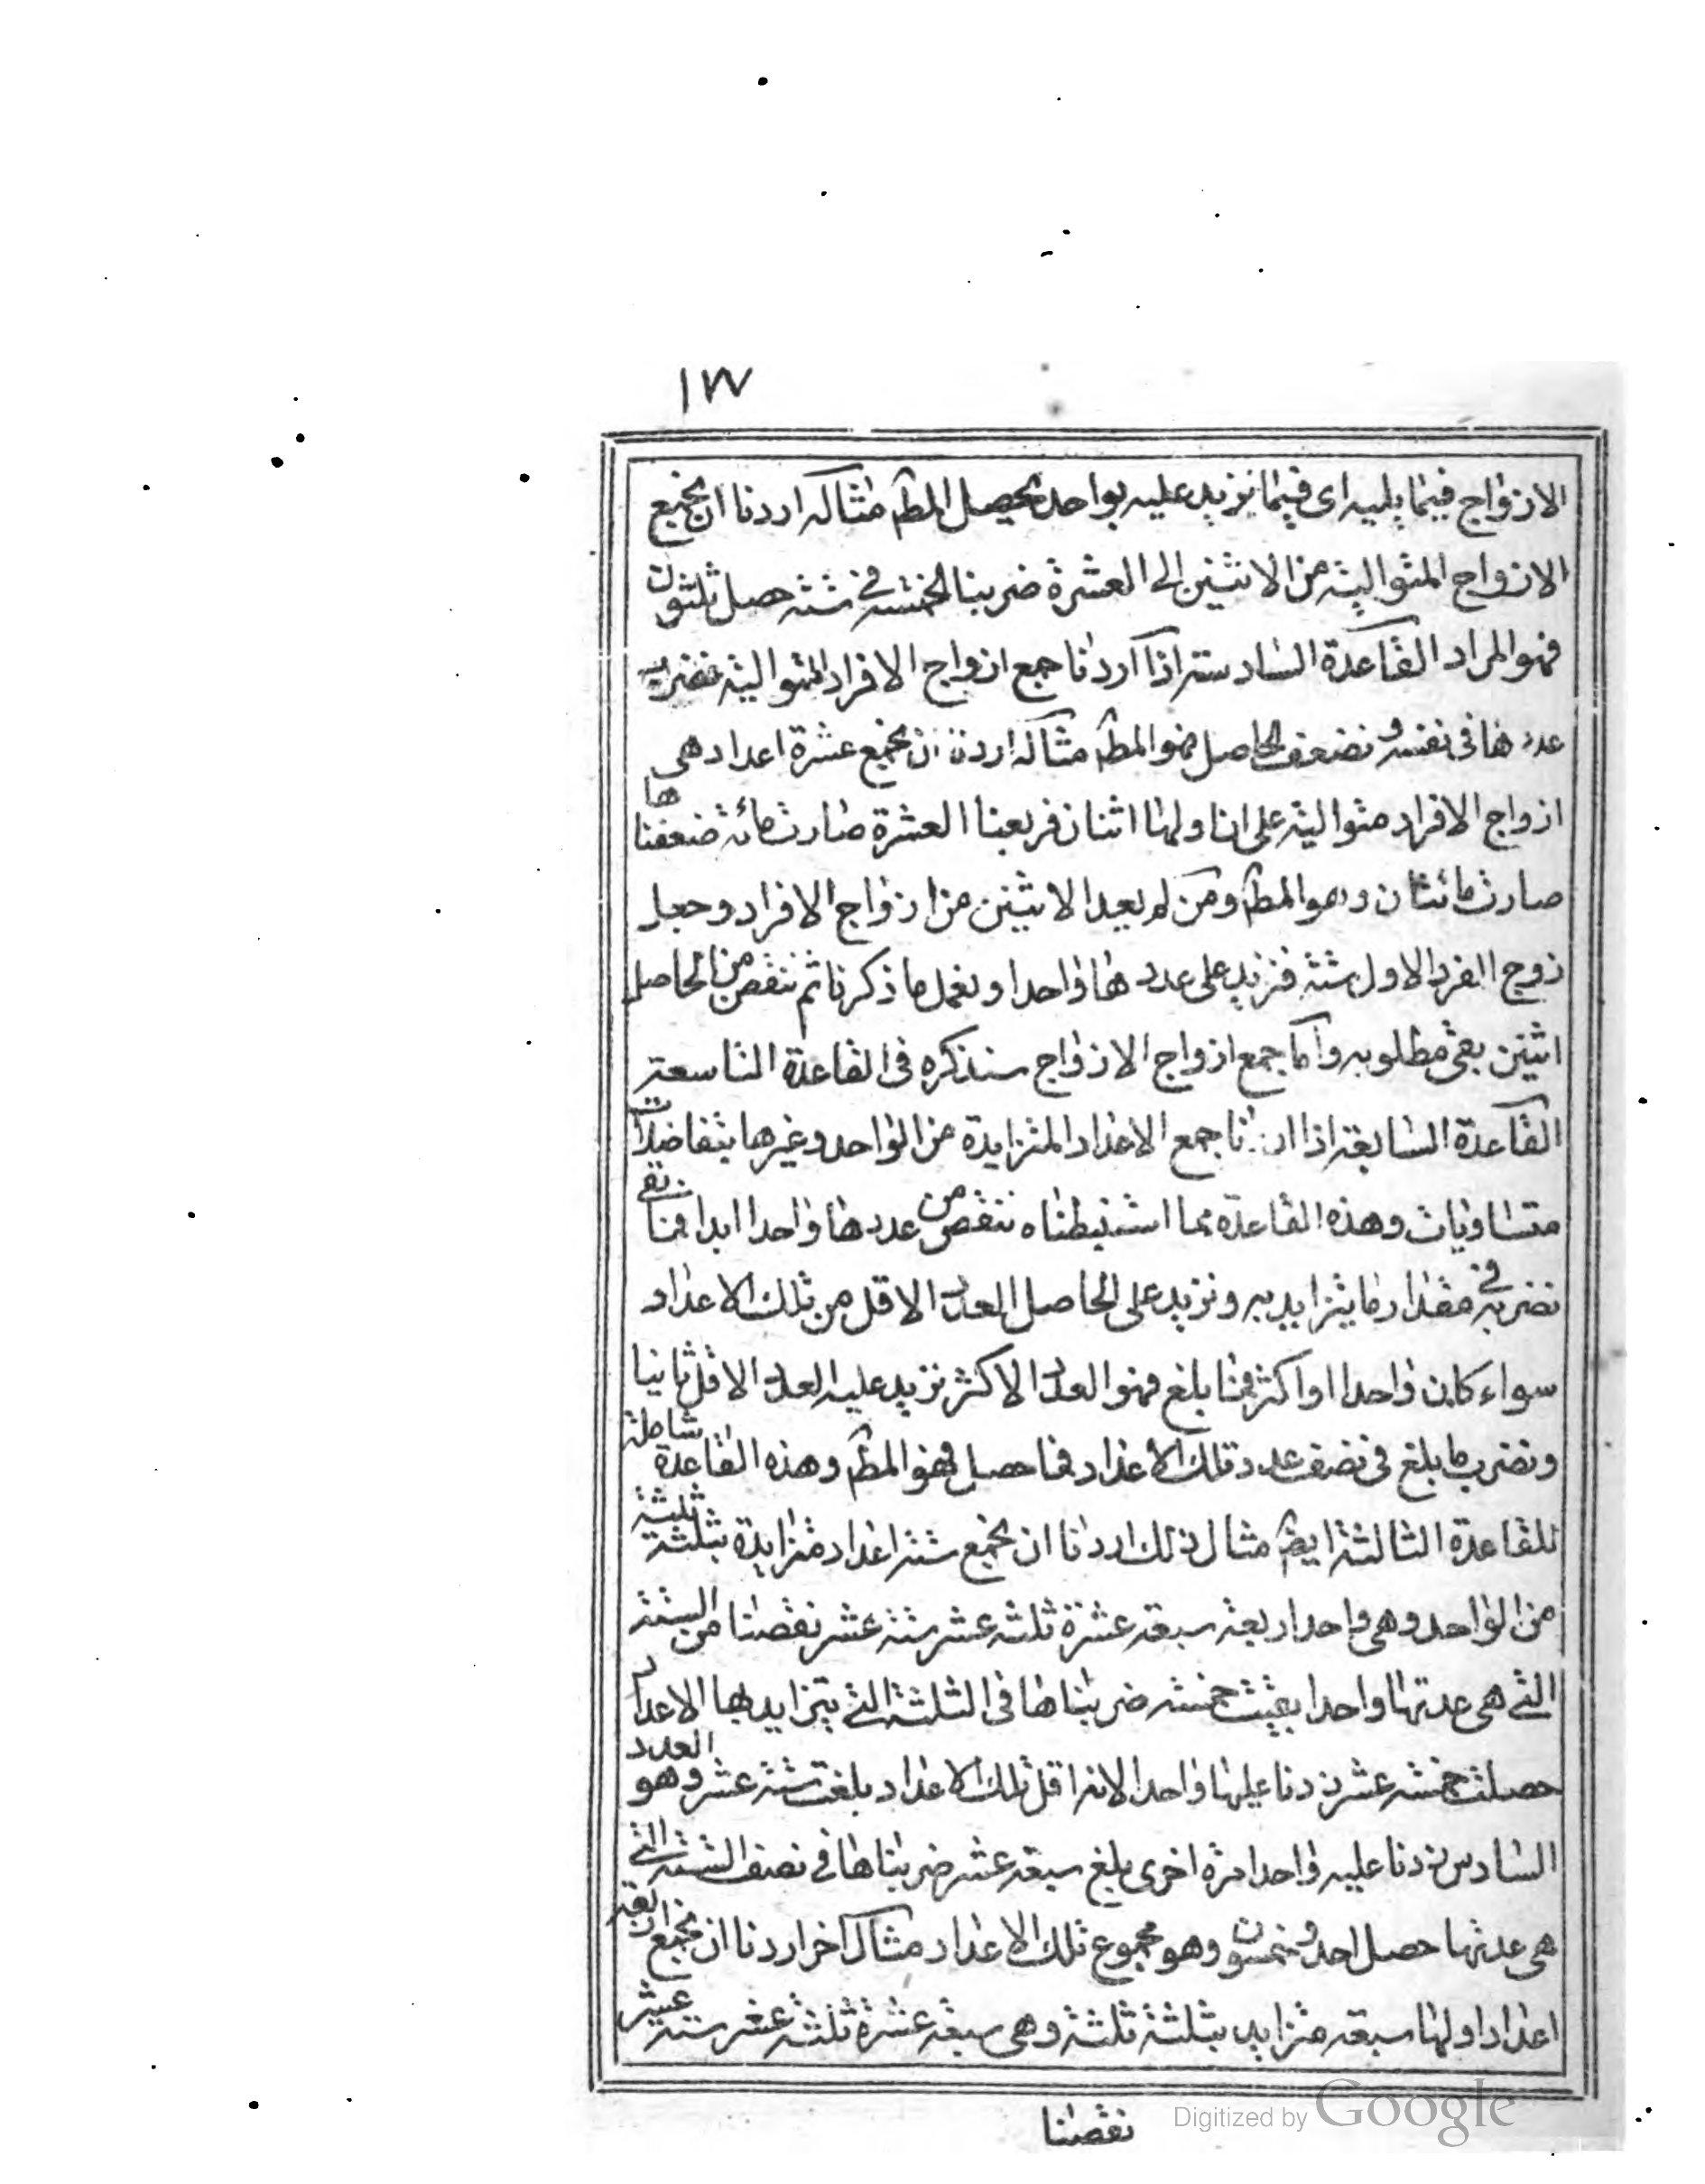 ١٧٧
الازواج فيما يليه اى فيما يزيد عليه بواحد يحصل المطـ مثاله اردنا ان نجمع
الازواج المتوالية من الاثنين الى العشرة ضربنا الخمسة فى ستة حصل ثلثون
فهو المراد القاعدة السادسة اذا اردنا جمع ازواج الافراد المتوالية نضرب
عددها فى نفسه و نضعف الحاصل فهو المطـ مثاله اردنا ان نجمع عشرة اعداد هى
ازواج الافراد متوالية على ان اولها اثنان فربعنا العشرة صارت مائة ضعفناها
صارت مائتان وهو المطـ ومن لم يعد الاثنين من ازواج الافراد وجعل
زوج الفرد الاول ستة فنزيد على عددها واحدا و نعمل ما ذكرنا ثم ننقص من الحاصل
اثنين بقى مطلوبه واما جمع ازواج الازواج سنذكره فى القاعدة التاسعة
القاعدة السابعة اذا اردنا جمع الاعداد المتزايدة من الواحد وغيرها بتفاضلات
متساويات وهذه القاعدة مما استنبطناه ننقص من عددها واحدا ابدا فما بقى
نضربه فى مقدار ما يتزايد به ونزيد على الحاصل العدد الاقل من تلك الاعداد
سواء كان واحدا او اكثر فما بلغ فهو العدد الاكثر نزيد عليه العدد الاقل ثانيا
ونضرب ما بلغ فى نصف عدد تلك الاعداد فما حصل فهو المطـ وهذه القاعدة شاملة
للقاعدة الثالثة ايضـ مثال ذلك اردنا ان نجمع ستة اعداد متزايدة بثلثة ثلثة
من الواحد وهى واحد اربعة سبعة عشرة ثلثة عشر ستة عشر نقصنا من الستة
التى هى عدتها واحدا بقيت خمسة ضربناها فى الثلثة التى يتزايد بها الاعداد
حصلت خمسة عشر زدنا عليها واحدا لانه اقل تلك الاعداد بلغت ستة عشر وهو العدد
السادس زدنا عليه واحدا مرة اخرى بلغ سبعة عشر ضربناها فى نصف الستة التى
هى عدتها حصل احد و خمسون وهو مجموع تلك الاعداد مثال آخر اردنا ان نجمع اربعة
اعداد اولها سبعة متزايد بثلثة ثلثة وهى سبعة عشرة ثلثة عشر ستة عشر
نقصنا
Digitized by Google